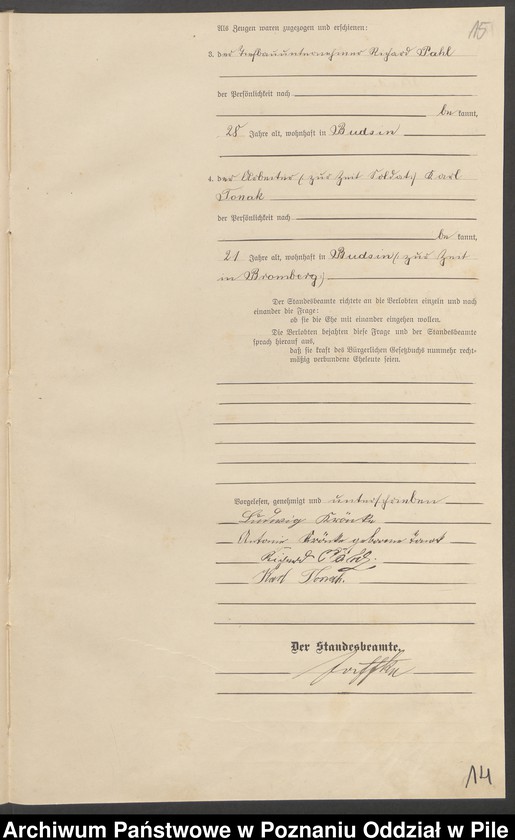 15
Als Zeugen waren zugezogen und erschienen:
3. der Tiefbauunternehmer Richard Pahl
der Persönlichkeit nach
be kannt,
28 Jahre alt, wohnhaft in Budsin
4. der Arbeiter (zur Zeit Soldat) Karl
Tonak
der Persönlichkeit nach
be kannt,
21 Jahre alt, wohnhaft in Budsin (zur Zeit
in Bromberg)
Der Standesbeamte richtete an die Verlobten einzeln und nach
einander die Frage:
ob sie die Ehe mit einander eingehen wollen.
Die Verlobten bejahten diese Frage und der Standesbeamte
sprach hierauf aus,
daß sie kraft des Bürgerlichen Gesetzbuchs nunmehr recht-
mäßig verbundene Eheleute seien.
Vorgelesen, genehmigt und unterschrieben
Ludwig Krönke
Antonie Krönke geborene
Richard Pahl.
Karl Tonak.
Der Standesbeamte.
14
Archiwum Państwowe w Poznaniu Oddział w Pile